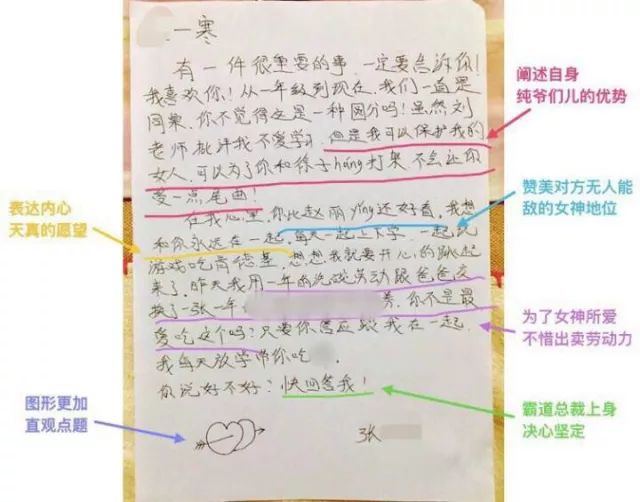 一寒
有一件很重要的事,一定要告诉你!
我喜欢你!从一年级到现在,我们一直是
同桌,你不觉得这是一种园分吗!虽然刘
老师批评我不爱学习,但是我可以保护我的
女人,可以为了你和徐子háng打架,不会让你
受一点尾曲!
在我心里,你比赵丽yǐng还好看,我想
和你永远在一起,每天一起上下学,一起玩
游戏吃肯德基,想想我就要开心的跳起
来了,昨天我用一年的洗碗劳动跟爸爸交
换了一张一年
养,你不是最
爱吃这个吗?只要你答应跟我在一起,
我每天放学带你吃
你说好不好?快回答我!
张
阐述自身
纯爷们儿的优势
赞美对方无人能
敌的女神地位
表达内心
天真的愿望
为了女神所爱
不惜出卖劳动力
图形更加
直观点题
霸道总裁上身
决心坚定